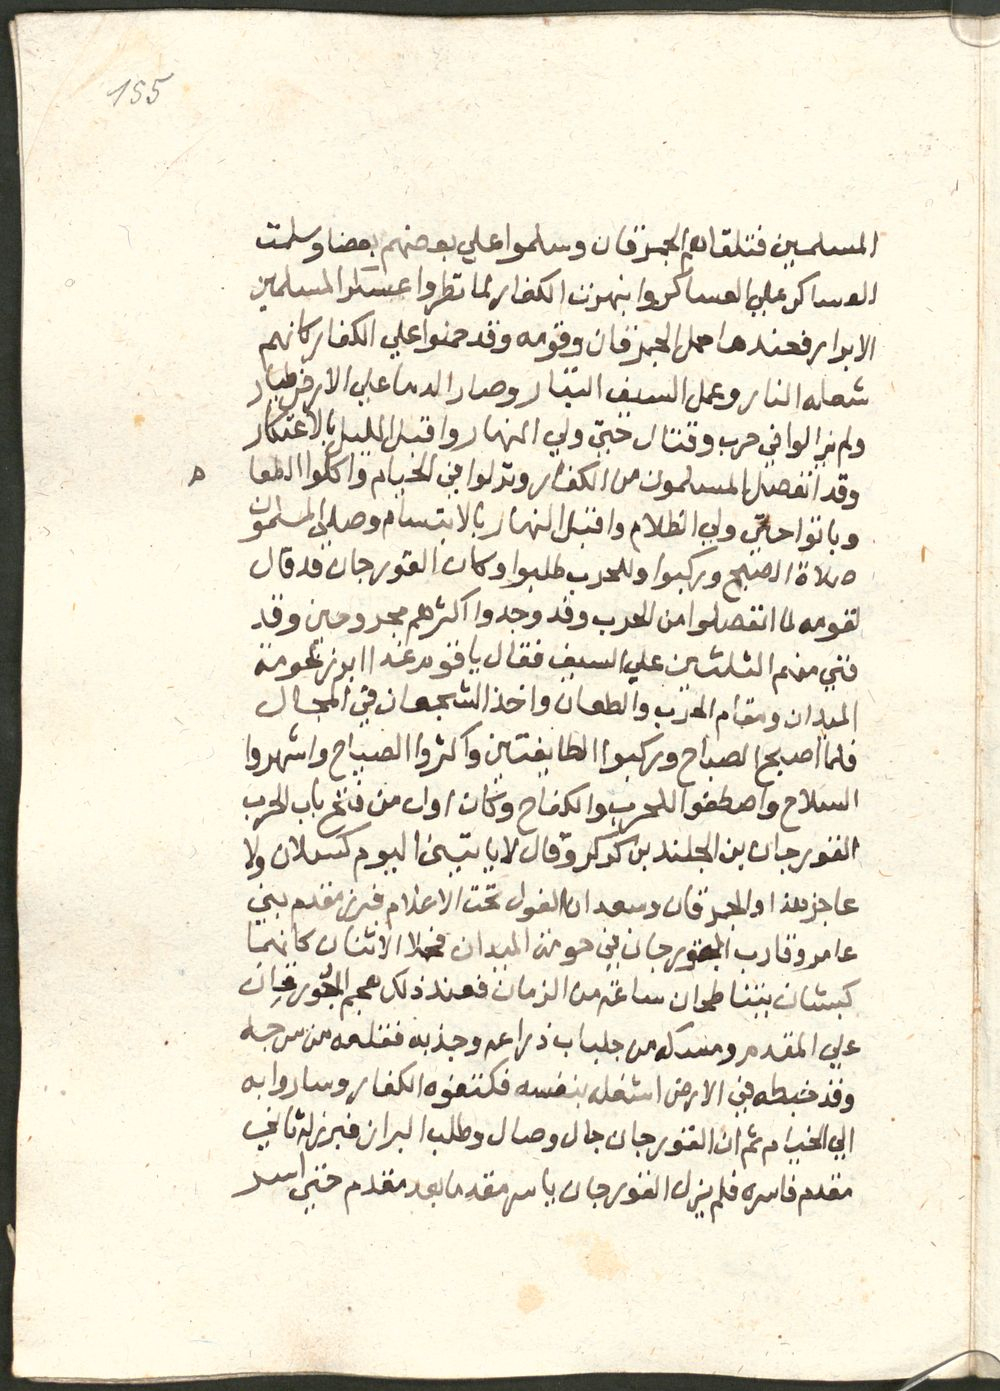 155
المسلمين فتلقاهم الجمرقان وسلموا علي بعضهم بعضا وسلمت
العساكر علي العساكر وابنهزت الكفار لما نظروا عسكر المسلمين
الابرار فعندها حمل الجمرقان وقومه وقد حمنوا علي الكفار كانهم
شعله النار وعمل السيف البتار وصار الدما علي الارض طيار
ولم يزالوا في حرب وقتال حتي ولي النهار واقبل الليل بالاعتكار
وقد انفصل المسلمون من الكفار ونزلوا في الخيام واكلوا الطعا
م
وباتوا حتي ولي الظلام واقبل النهار بالابتسام وصلي المسلمون
صلاة الصبح وركبوا وللحرب طلبوا وكان القورجان قد قال
لقومه لما انفصلوا من الحرب وقد وجدوا اكثرهم مجروحين وقد
فني منهم الثلثين علي السيف فقال يا قوم غدا ابرز لحومة
الميدان ومقام الحرب والطعان واخذ الشجعان في المجال
فلما اصبح الصباح وركبوا الطايفتين واكثروا الصياح واشهروا
السلاح واصطفوا للحرب والكفاح وكان اول من فتح باب الحرب
القورجان بن الجلند بن كركر وقال لا ياتيني اليوم كسلان ولا
عاجز هذا والجمرقان وسعدان الغول تحت الاعلام فبرز مقدم بني
عامر وقارب القورجان في حومة الميدان فحملا الاثنان كانهما
كبشان يتناطحان ساعة من الزمان فعند ذلك هجم القورجان
علي المقدم ومسكه من جلباب ذراعه وجذبه فقلعه من سرجه
وقد خبطه في الارض اشغله بنفسه فكتفوه الكفار وساروا به
الي الخيام ثم ان القورجان جال وصال وطلب البراز فبرز له ثاني
مقدم فاسره فلم يزل القورجان ياسر مقدما بعد مقدم حتي اسر